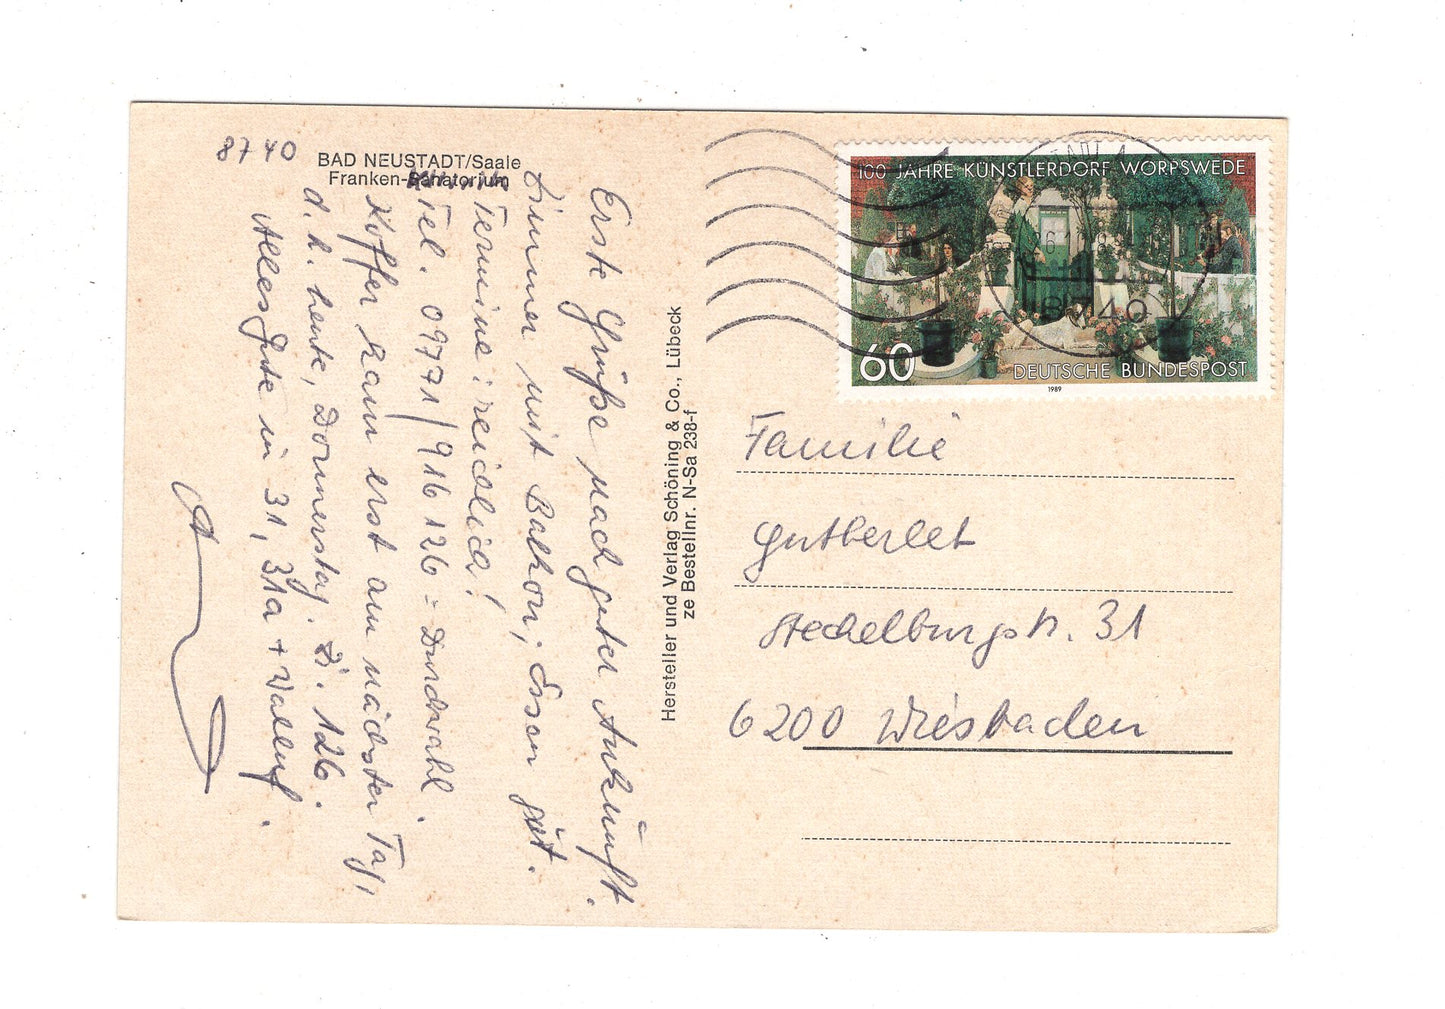 8740
BAD NEUSTADT/Saale
Franken-Sanatorium
Klinik
Erste Grüße nach guter Ankunft.
Zimmer mit Balkon; Essen gut.
Termine: reichlich!
Tel. 09771/916126 = Durchwahl.
Koffer kam erst am nächsten Tag,
d.h. heute, Donnerstag. Zi. 126.
Alles Gute in 31, 31a +
Hersteller und Verlag Schöning & Co., Lübeck
ze Bestellnr. N-Sa 238-f
100 JAHRE KÜNSTLERDORF WORPSWEDE
60
DEUTSCHE BUNDESPOST
1989
8740
Familie
Gutberlet
Stechelburgstr. 31
6200 Wiesbaden